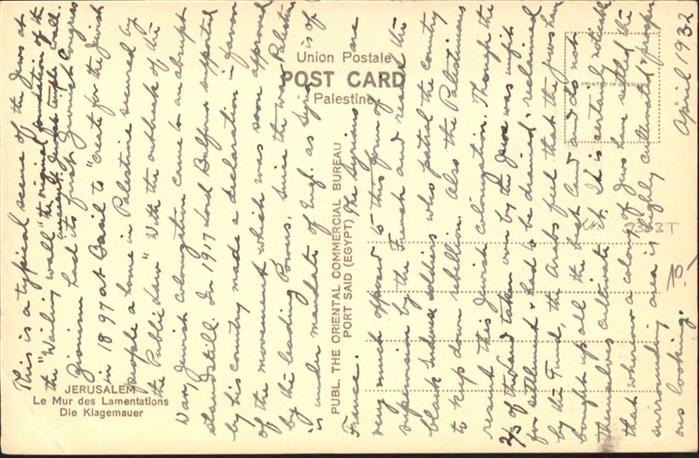 Union Postale
POST CARD
Palestine
JERUSALEM
Le Mur des Lamentations
Die Klagemauer
PUBL. THE ORIENTAL COMMERCIAL BUREAU
PORT SAID (EGYPT)
This is a typical scene of the Jews at
the "Wailing wall" the original foundation of the
ancient & first temple
Zionism had its first Jewish Congress
in 1897 at Basil to "create for the Jewish
people a home in Palestine secured by
the Public Law" With the outbreak of the
War, Jewish colonization came to an abrupt
standstill. In 1917 Lord Balfour supported
by his country made a declaration in favor
of the movement which was soon approved
by the leading Powers. Since the war Palestine
is under mandate of Engl. as Syria is of
France. The Syrians are
very much opposed to this form of
supervision by the French and resent the
black soldiers who patrol the country
to keep down rebellion. Also the Palestinians
resent this Jewish colonization. Though the
2/3 of the land taken over by the Jews was unfit
for settlement & had to be drained & reclaimed
by the Fund, the Arabs feel that the Jews have
bought up all the best land and do not
themselves cultivate it. It is certainly noticeable
that wherever a colony of Jews have settled the
surrounding area is highly cultivated & prosper-
ous looking.
April 1932
10